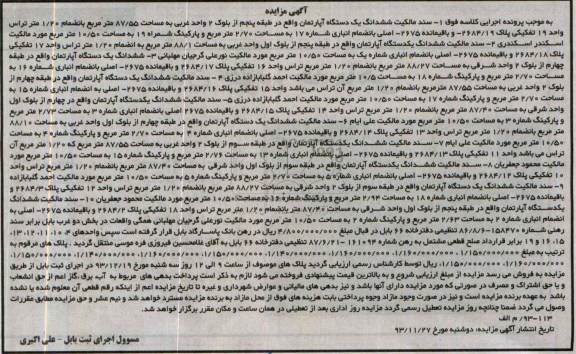 آگهی مزایده
به موجب پرونده اجرایی کلاسه فوق ۱- سند مالکیت ششدانگ یک دستگاه آپارتمان واقع در طبقه پنجم از بلوک ۲ واحد غربی به مساحت ۸۷/۵۵ متر مربع بانضمام ۱/۲۰ متر تراس
واحد ۱۹ تفکیکی پلاک ۲۶۸۴/۱۹ و باقیمانده ۲۶۷۵- اصلی بانضمام انباری شماره ۱۷ به مساحت ۲/۷۰ متر مربع و پارکینگ شماره ۱۹ به مساحت ۱۰/۵۰ متر مربع مورد مالکیت
اسکندر اسکندری ۲- سند مالکیت ششدانگ یکدستگاه آپارتمان واقع در طبقه پنجم از بلوک اول واحد غربی به مساحت ۸۸/۱ متر مربع به انضمام ۱/۲۰ متر تراس واحد ۱۷ تفکیکی
پلاک ۲۶۸۴/۱۸ و باقیمانده ۲۶۷۵- اصلی بانضمام انباری شماره
چهارم از بلوک ۲ واحد شرقی به مساحت ۸۸/۲۷ متر مربع بانضمام ۱/۲۰ متر تراس واحد ۱۶ تفکیکی پلاک ۲۶۸۴/۱۷ و باقیمانده ۲۶۷۵- اصلی بانضمام انباری شماره ۱۶ به
مساحت ۲/۷۰ متر مربع و پارکینگ شماره ۱۸ به مساحت ۱۰/۵ متر مربع مورد مالکیت احمد گنبازاده درزی ۴- سند مالکیت ششدانگ یک دستگاه آپارتمان واقع در طبقه چهارم از
بلوک ۲ واحد غربی به مساحت ۸۷/۵۵ متر مربع بانضمام ۱/۲۰ متر
مساحت ۲/۷۰ متر مربع و پارکینگ شماره ۱۷ به مساحت ۱۰/۵۰ متر مربع مورد مالکیت احمد گنبازاده درزی ۵- سند مالکیت ششدانگ یکدستگاه آپارتمان واقع در طبقه چهارم از بلوک اول
واحد شرقی به مساحت ۸۷/۴۰ متر مربع بانضمام ۱/۲۰ متر مربع تراس واحد ۱۴ تفکیکی پلاک ۲۶۸۴/۱۵ و باقیمانده ۲۶۷۵ اصلی بانضمام انباری شماره ۳ به مساحت ۲/۷۳ متر مربع
و پارکینگ شماره ۳ به مساحت ۱۰/۵۰ متر مربع مورد مالکیت علی ایام ۶- سند مالکیت ششدانگ یک دستگاه آپارتمان واقع در طبقه چهارم از بلوک اول واحد غربی به مساحت ۸۸/۱۰
متر مربع بانضمام ۱/۲۰ متر مربع تراس واحد ۱۳ تفکیکی پلاک ۲۶۸۴/۱۴ و باقیمانده ۲۶۷۵- اصلی بانضمام انباری شماره ۴ به مساحت ۲/۷۰ متر مربع و پارکینگ شماره ۴ به مساحت
۱۰/۵۰ متر مربع مورد مالکیت علی ایام ۷- سند مالکیت ششدانگ یکدستگاه آپارتمان واقع در طبقه سوم از بلوک ۲ واحد غربی به مساحت ۸۷/۵۵ متر مربع
مالکیت محمود جعفریان ۸- سند مالکیت ششدانگ یکدستگاه آپارتمان واقع در طبقه سوم از بلوک اول واحد شرقی به مساحت ۸۷/۴۰ متر مربع بانضمام ۱/۲۰ متر مربع تراس واحد
۱۰ تفکیکی پلاک ۲۶۸۴/۱۲ و باقیمانده ۲۶۷۵- اصلی بانضمام انباری شماره ۵ به مساحت ۲/۷۰ متر مربع و پارکینگ شماره ۵ به مساحت ۱۰/۵۰ متر مربع مورد مالکیت احمد گنبازاده
۹- سند مالکیت ششدانگ یک دستگاه آپارتمان واقع در طبقه سوم از بلوک ۲ واحد شرقی به مساحت ۸۸/۲۷ متر مربع بانضمام ۱/۲۰ متر مربع تراس واحد ۱۲ تفکیکی پلاک
باقیمانده ۲۶۷۵- اصلی بانضمام انباری شماره ۱۸ به مساحت ۲/۹۴ متر مربع و پارکینگ شماره ۱۶ به مساحت ۱۰/۵۰ متر مربع مورد مالکیت محمود جعفریان ۱۰- سند مالکیت ششدانگ
یکدستگاه آپارتمان واقع در طبقه پنجم از بلوک اول واحد شرقی به مساحت ۸۷/۴۰ متر مربع بانضمام ۱/۲۰ متر مربع تراس واحد ۱۸ تفکیکی
انضمام انباری شماره ۲ به مساحت ۲/۷۳ متر مربع و پارکینگ شماره ۲ به مساحت ۱۰/۵۰ متر مربع مورد مالکیت نورعلی گرجیان مهلبانی همگی واقعات در بخش دو غرب بابل برابر سند
رهنی شماره ۱۵۸۴۷۰-۸۶/۸/۶ تنظیمی دفترخانه ۶۶ بابل در قبال مبلغ ۴/۸۰۰/۰۰۰/۰۰۰ ریال در رهن بانک پاسارگاد بابل قرار گرفته است سپس واحدهای ۱۳،۱۲،۱۱،۱۰،۴
۱۵، ۱۶ و ۱۹ برابر قرارداد صلح قطعی مشتمل به رهن شماره ۱۶۱۰۹۴- ۸۷/۶/۲۱ تنظیمی دفترخانه ۶۶ بابل به آقای غلامحسین فیروزی فره موسی منتقل گردید . پلاک های مرقوم به
ترتیب به مبلغ
ریال توسط کارشناس رسمی ارزیابی گردید پلاک های موصوف از ساعت ۹ الی ۱۲ روز سه شنبه مورخ ۹۳/۱۲/۱۹ در اجرای ثبت بابل از طریق
مزایده به فروش می رسد مزایده از مبلغ ارزیابی شروع و به بالاترین قیمت پیشنهادی فروخته می شود لازم به ذکر است پرداخت بدهی های مربوط به آب، برق، گاز اعم از حق انشعاب
و یا حق اشتراک و مصرف در صورتی که مورد مزایده دارای آنها باشد و نیز بدهی های مالیاتی و عوارض شهرداری و غیره تا تاریخ مزایده اعم از اینکه رقم قطعی آن معلوم شده یا نشده
باشد به عهده برنده مزایده است و نیز در صورت وجود مازاد وجوه پرداختی بابت هزینه های فوق از محل مازاد به برنده مزایده مسترد خواهد شد و نیم عشر و حق مزایده مطابق مقررات
وصول می گردد ضمنا چنانچه روز مزایده تعطیل رسمی گردد مزایده روز اداری بعد از تعطیلی در همان ساعت و مکان مقرر برگزار خواهد شد.
۹۳-۱۱۳/ م الف
تاریخ انتشار آگهی مزایده: دوشنبه مورخ ۹۳/۱۱/۲۷
مسوول اجرای ثبت بابل - علی اکبری